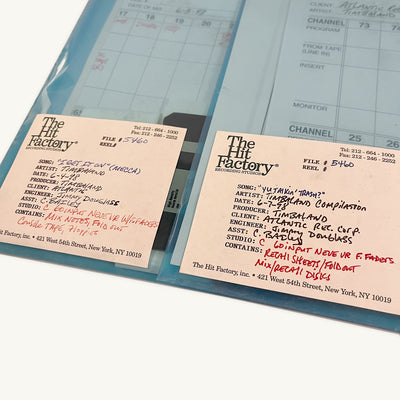 DATE OF MIX 6-3-97
17 18 19 20
ARTIST: TIMBALAND
CHANNEL 73 74
PROGRAM
FROM TAPE
(LINE IN)
INSERT
MONITOR
CHANNEL 25 26
The
Hit
Factory
RECORDING STUDIOS
Tel: 212 - 664 - 1000
Fax: 212 - 246 - 2252
FILE # 5460
REEL#
SONG: "I GET IT ON" (MECCA)
ARTIST: TIMBALAND
DATE: 6-4-98
PRODUCER: TIMBALAND
CLIENT: ATLANTIC
ENGINEER: JIMMY DOUGLASS
ASST: C. BAILEY
STUDIO: C 60 INPUT NEVE VR W/ F. FADERS
CONTAINS: MIX NOTES, FOLD OUT
The Hit Factory, inc. • 421 West 54th Street, New York, NY 10019
The
Hit
Factory
RECORDING STUDIOS
Tel: 212 - 664 - 1000
Fax: 212 - 246 - 2252
FILE # 5460
REEL#
SONG: "YU TALKIN' TRASH?"
ARTIST: TIMBALAND COMPILATION
DATE: 6-7-98
PRODUCER: TIMBALAND
CLIENT: ATLANTIC REC. CORP.
ENGINEER: JIMMY DOUGLASS
ASST: C. BAILEY
STUDIO: C 60 INPUT NEVE VR F. FADERS
CONTAINS: RECALL SHEETS/FOLD OUT
MIX/RECALL DISKS
The Hit Factory, inc. • 421 West 54th Street, New York, NY 10019